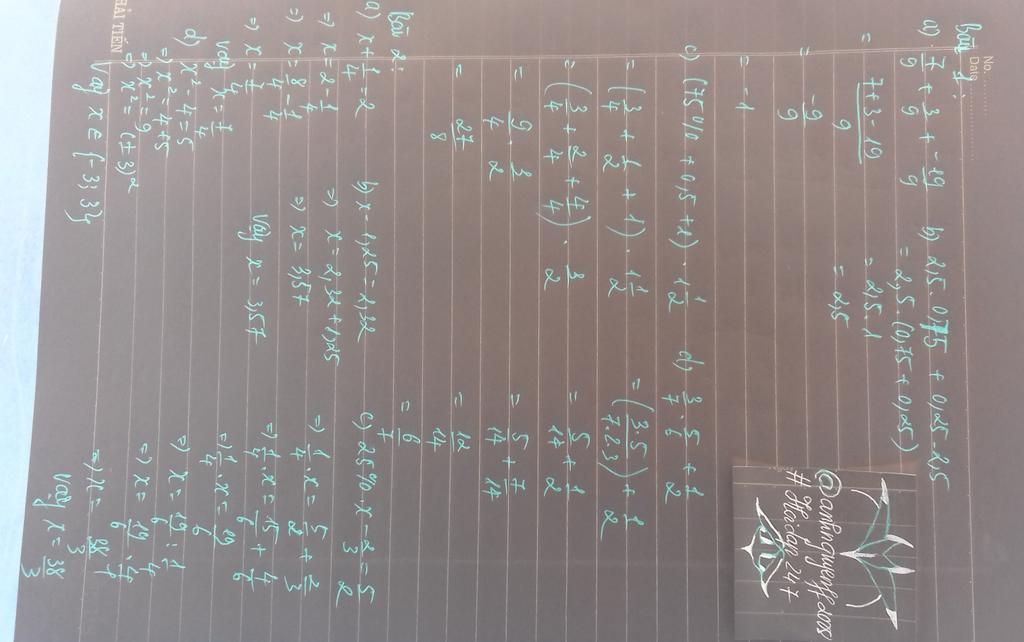 No.
Date
Bài 1:
a) 7/9 + 3/9 + -19/9
= 7+3-19/9
= -9/9
= -1
b) 2,5 . 0,75 + 0,25 . 2,5
= 2,5 . (0,75 + 0,25)
= 2,5 . 1
= 2,5
c) (75% + 0,5 + 1) . 1 1/2
= (3/4 + 1/2 + 1) . 1 1/2
= (3/4 + 2/4 + 4/4) . 3/2
= 9/4 . 3/2
= 27/8
d) 3/7 . 5/6 + 1/2
= (3.5/7.2.3) + 1/2
= 5/14 + 1/2
= 5/14 + 7/14
= 12/14
= 6/7
Bài 2:
a) x + 1/4 = 2
=) x = 2 - 1/4
=) x = 8/4 - 1/4
=) x = 7/4
Vậy x = 7/4
b) x - 1,25 = 2,32
=) x = 2,32 + 1,25
=) x = 3,57
Vậy x = 3,57
c) 25% . x - 2/3 = 5/2
=) 1/4 . x = 5/2 + 2/3
=) 1/4 . x = 15/6 + 4/6
=) 1/4 . x = 19/6
=) x = 19/6 : 1/4
=) x = 19/6 . 4/1
=) x = 38/3
Vậy x = 38/3
d) x² - 4 = 5
=) x² = 4+5
=) x² = 9
=) x² = (±3)²
Vậy x ∈ {-3; 3}
#Hoidap247
HẢI TIẾN